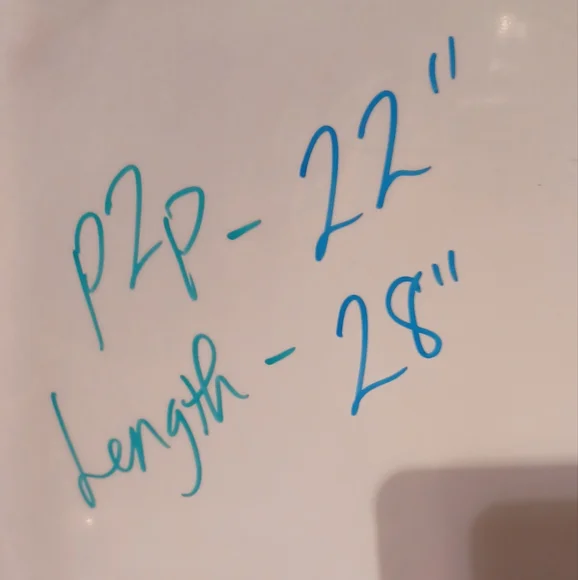 p2p - 22"
Length - 28"